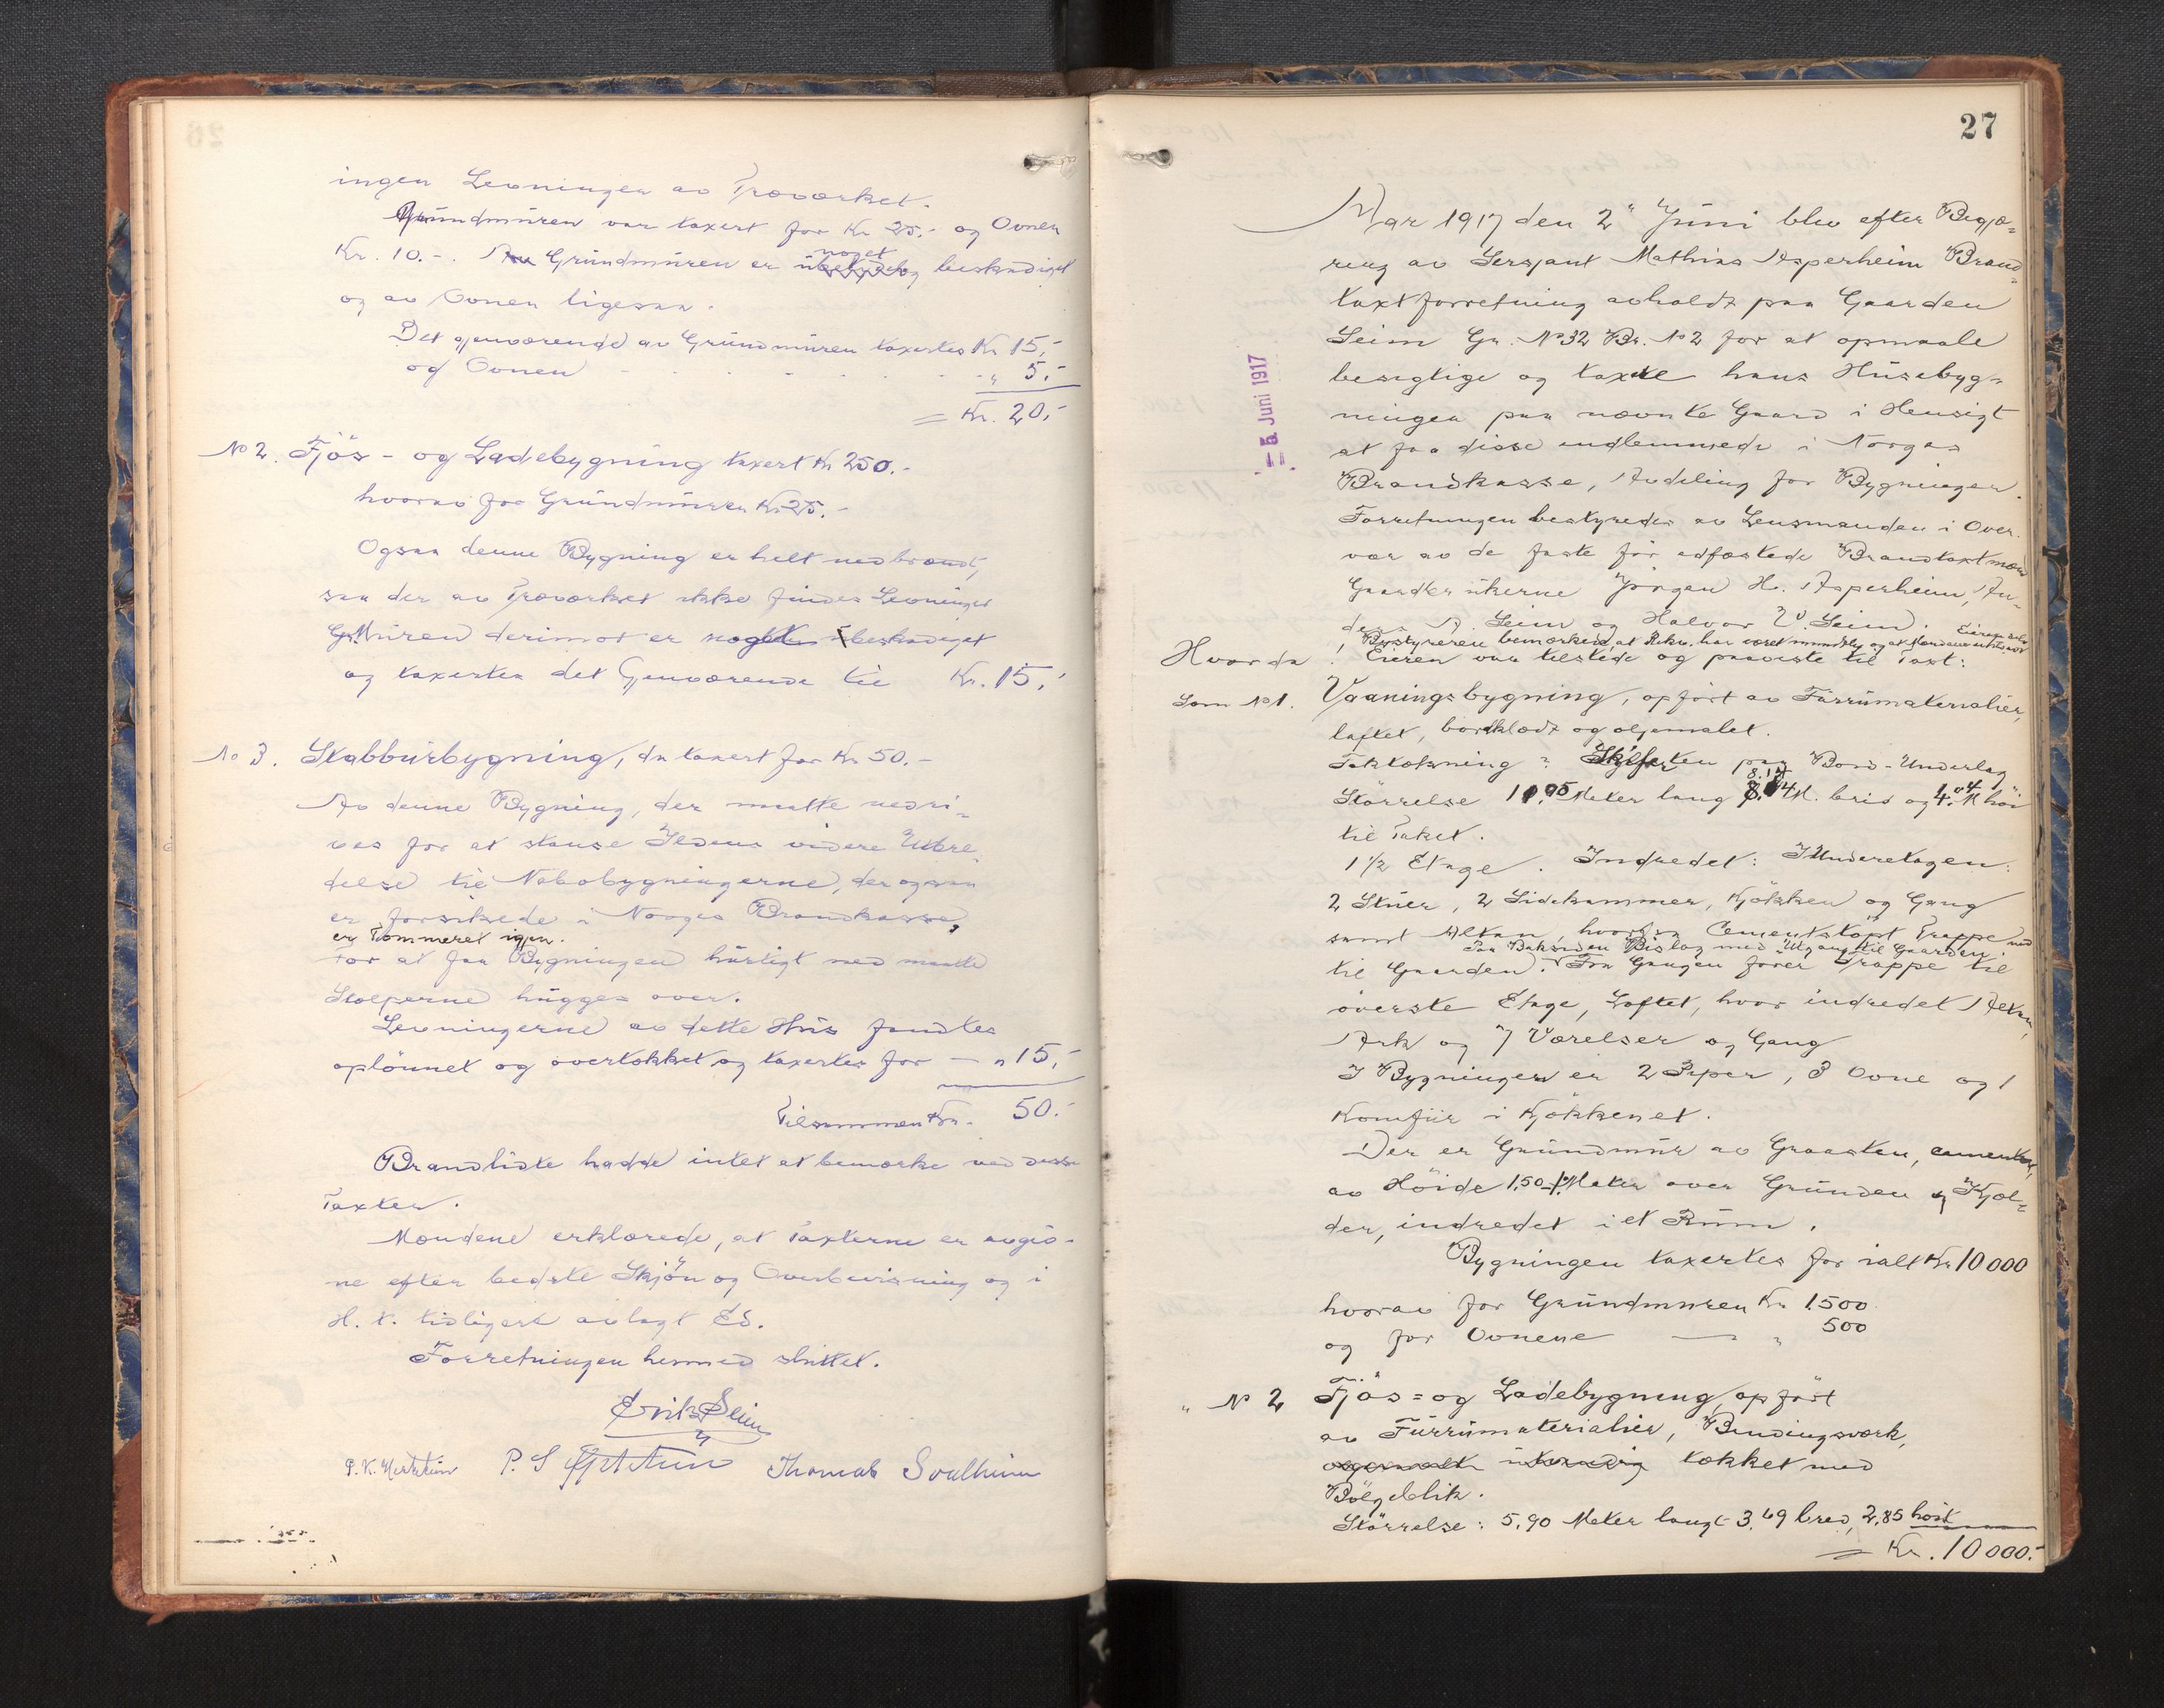 ingen Levninger av Træværket.
Grundmuren var taxert for Kr 25.- og Ovnen
Kr. 10.-. Grundmuren er noget beskadiget
og av Ovnen ligesaa.
Det gjenværende av Grundmuren taxertes Kr 15,-
og Ovnen " 5.-
= Kr. 20,-
No 2. Fjös- og Ladebygning taxert Kr 250.-
hvorav for Grundmuren Kr 25.-
Ogsaa denne Bygning er helt nedbrændt,
saa der av Træværket ikke findes Levninger
Gr.Muren derimot er noget beskadiget
og taxertes det Gjenværende til Kr. 15,-
No 3. Stabbursbygning, da taxert for Kr 50.-
Av denne Bygning, der maatte nedri-
ves for at stanse Ildens videre Utbre-
delse til Nabobygningerne, der ogsaa
er forsikrede i Norges Brandkasse,
er Tömmeret igjen.
For at faa Bygningen hurtigt ned maatte
Stolperne hugges over.
Levningerne av dette Hus fandtes
oplönnet og overtækket og taxertes for — " 15,-
Tilsammen Kr. 50.-
Brandlidte hadde intet at bemærke ved disse
Taxter.
Mændene erklærede, at Taxterne er avgiv-
ne efter bedste Skjön og Overbevisning og i
H. t. tidligere avlagt Ed.
Forretningen hermed sluttet.
Erik Seim
P. K. P. S. Thomas Solheim
27
Aar 1917 den 2" Juni blev efter Begjæ-
ring av Sersjant Mathias Asperheim Brand-
taxtforretning avholdt paa Gaarden
Seim Gr. No 32 Br. No 2 for at opmaale
besigtige og taxere hans Husebyg-
ninger paa nævnte Gaard i Hensigt
at faa disse indlemmede i Norges
Brandkasse, Avdeling for Bygninger.
– 5. Juni 1917
Forretningen bestyredes av Lensmanden i Over-
vær av de faste för edfæstede Brandtaxtmænd
Gaardbrukerne Jörgen H. Asperheim, An-
ders A. Seim og Halvor V. Seim.
Bestyreren bemærkede, at Rekv. har været mundtlig og at Mændene
Hvorda Eieren var tilstede og paaviste til Taxt:
Som No 1. Vaaningsbygning, opfört av Furumaterialier,
laftet, bordklædt og oljemalet.
Taktækning: Skifer paa Bord-Underlag
Störrelse 11.95 Meter lang 8.14 M. bred og 4.04 M höi
til Taket.
1 1/2 Etage. Indredet: I Underetagen:
2 Stuer, 2 Sidekammer, Kjökken og Gang
samt Altan, hvorfra Cementstöpt Trappe ned
Paa Baksiden Bislag med Utgang til Gaarden.
til Gaarden. Fra Gangen förer Trappe til
överste Etage, Loftet, hvor indredet Altan,
Ark og 7 Værelser og Gang
I Bygningen er 2 Piper, 3 Ovne og 1
Komfür i Kjökkenet.
Der er Grundmur av Graasten, cementert,
av Höide 1,50 Meter over Grunden og Kjæl-
der, indredet i et Rum.
Bygningen taxertes for ialt Kr 10 000
hvorav for Grundmuren Kr 1.500
og for Ovnene — " 500
" No 2 Fjös= og Ladebygning, opfört
av Furumaterialier, Bindingsværk,
tækket med
Bölgeblik.
Störrelse: 5,90 Meter langt 3.69 bred, 2,85 höit
= Kr. 10 000.-